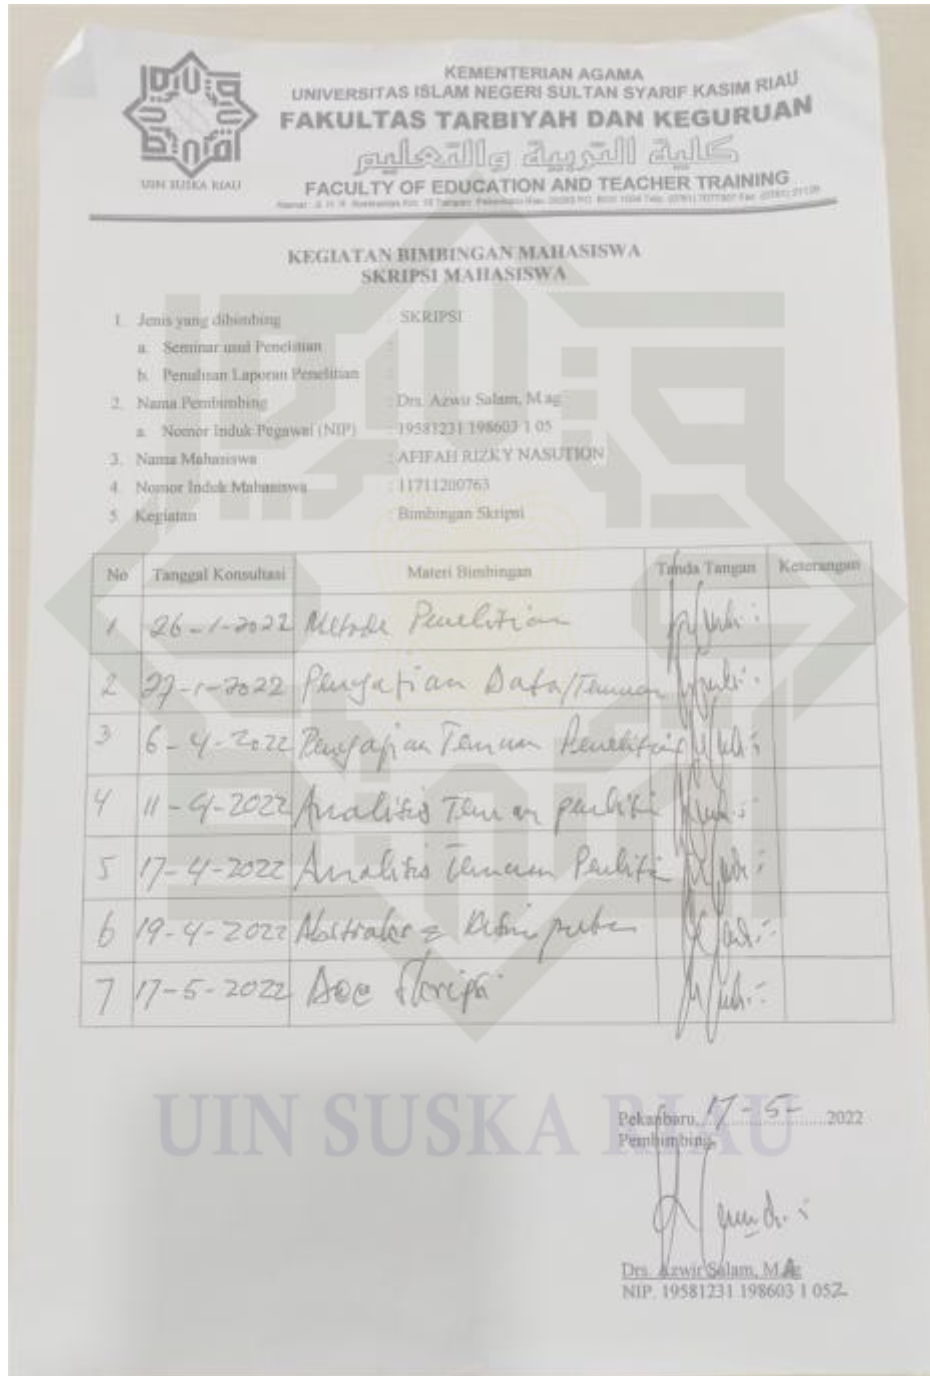 KEMENTERIAN AGAMA
UNIVERSITAS ISLAM NEGERI SULTAN SYARIF KASIM RIAU
FAKULTAS TARBIYAH DAN KEGURUAN
كلية التربية والتعليم
FACULTY OF EDUCATION AND TEACHER TRAINING
UIN SUSKA RIAU
KEGIATAN BIMBINGAN MAHASISWA
SKRIPSI MAHASISWA
1. Jenis yang dibimbing : SKRIPSI
a. Seminar usul Penelitian :
b. Penulisan Laporan Penelitian :
2. Nama Pembimbing : Drs. Azwir Salam, M.ag
a. Nomor Induk Pegawai (NIP) : 19581231 198603 1 05
3. Nama Mahasiswa : AFIFAH RIZKY NASUTION
4. Nomor Induk Mahasiswa : 11711200763
5. Kegiatan : Bimbingan Skripsi
No Tanggal Konsultasi Materi Bimbingan Tanda Tangan Keterangan
1 26-1-2022 Metode Penelitian
2 27-1-2022 Data/Temuan
3 6-4-2022 Temuan Penelitian
4 11-4-2022 Analisis Temuan
5 17-4-2022 Analisis Temuan
6 19-4-2022
7 17-5-2022 Acc Skripsi
UIN SUSKA RIAU
Pekanbaru, 17-5- 2022
Pembimbing,
Drs. Azwir Salam, M.Ag
NIP. 19581231 198603 1 052